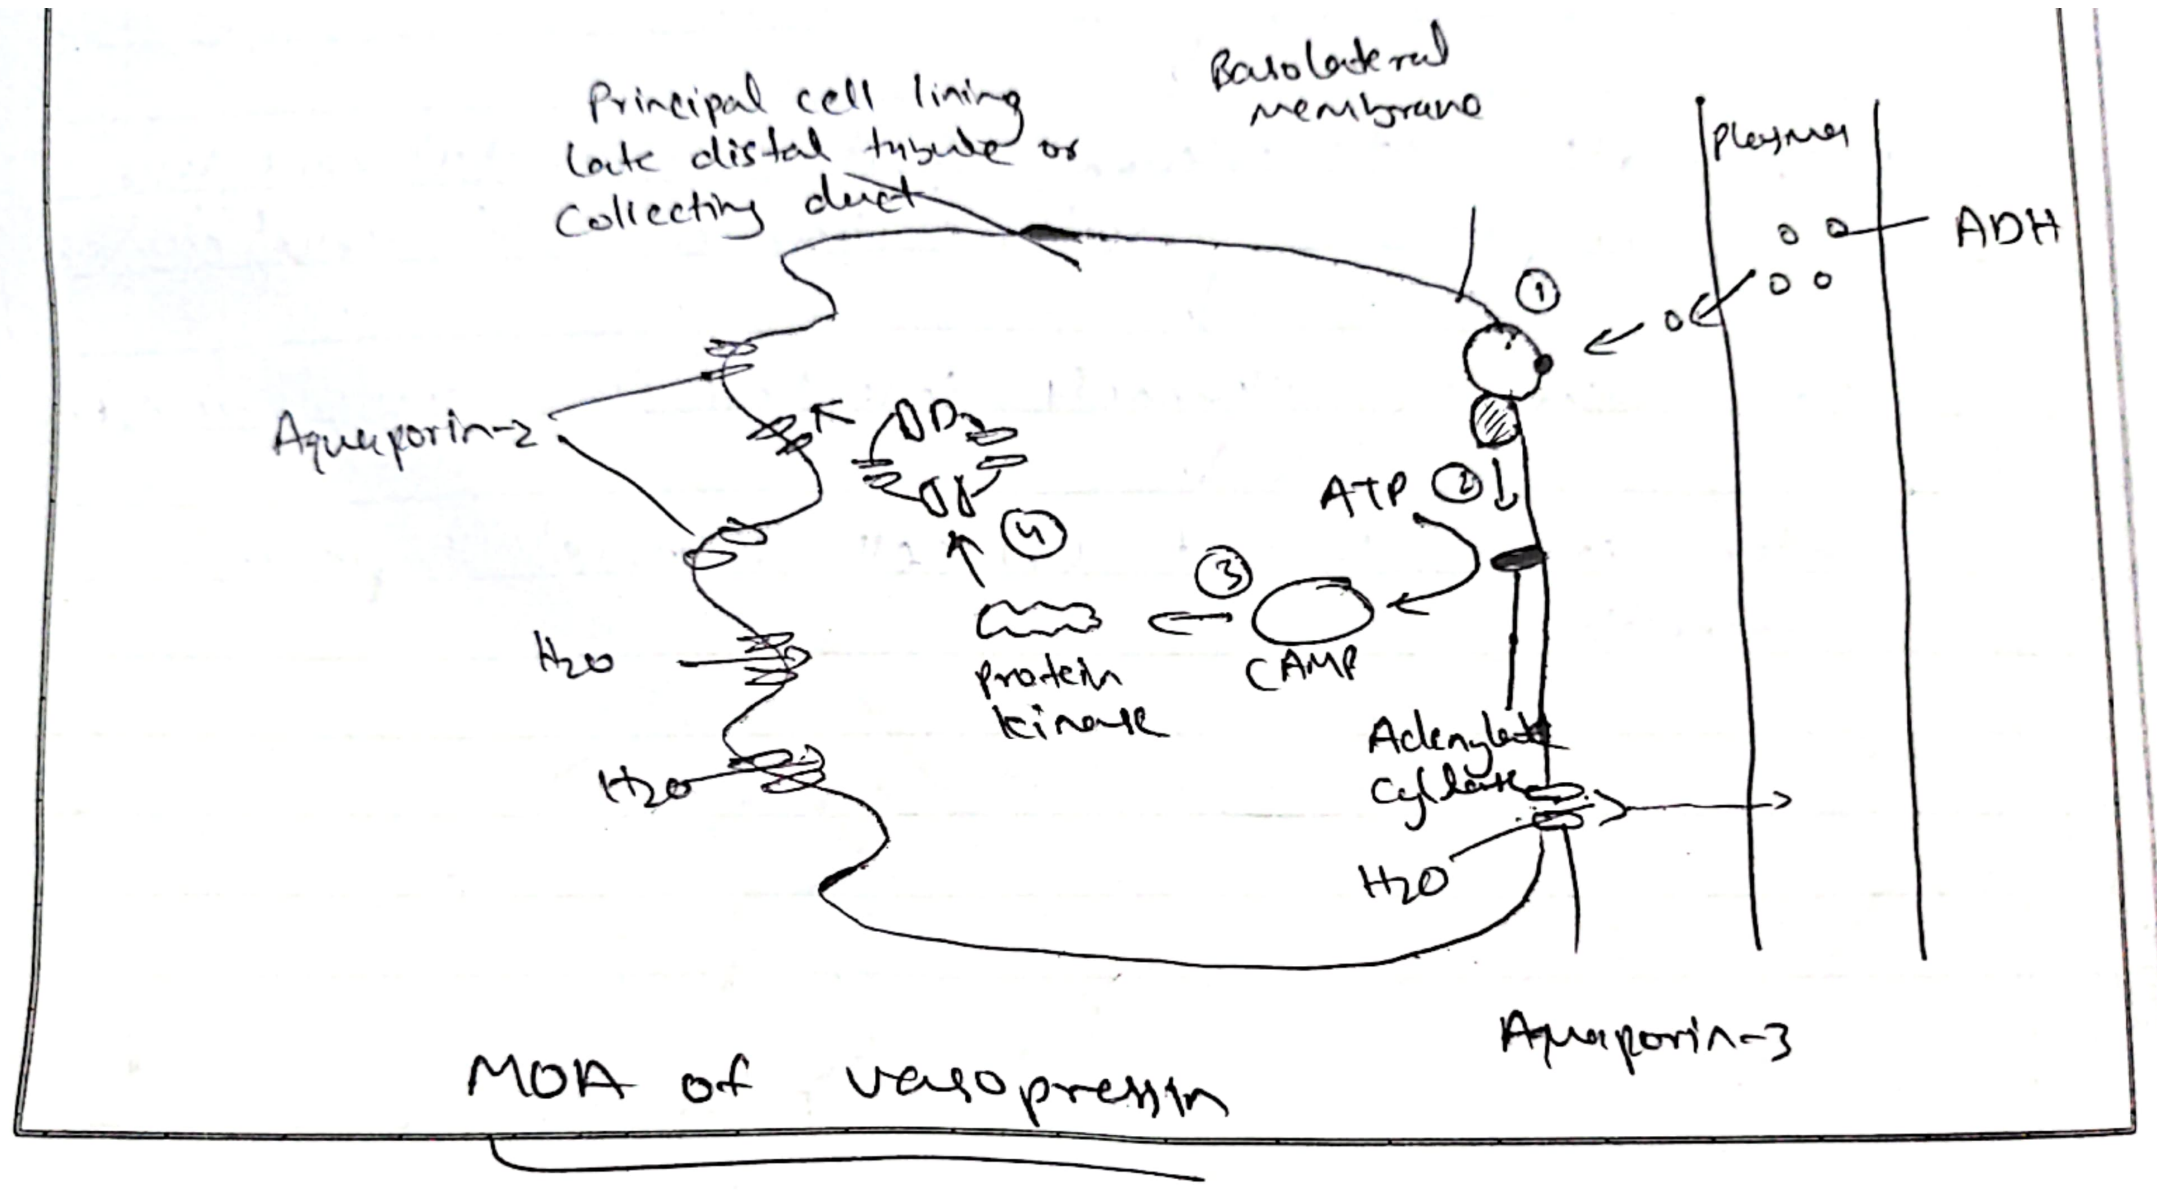 Principal cell lining
late distal tubule or
Collecting duct
Basolateral
membrane
plasma
ADH
1
Aquaporin-2
ATP 2
4
3
H2O
protein
kinase
CAMP
Adenylate
Cyclase
H2O
H2O
Aquaporin-3
MOA of vasopressin